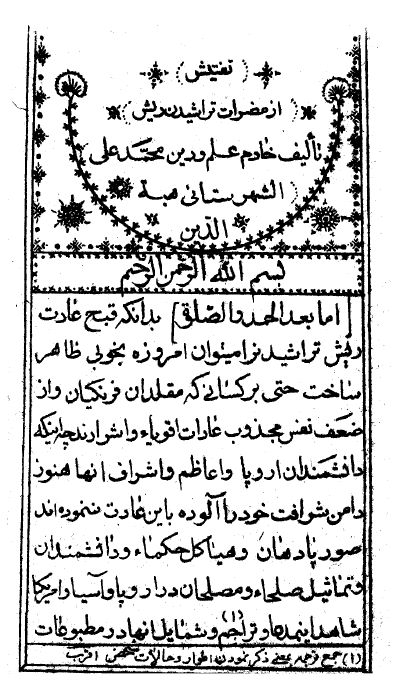 (تفتیش)
(از مضرات تراشیدن ریش)
تألیف خادم علم و دین محمد علی
الشهرستانی هبة
الدین
بسم الله الرحمن الرحیم
[اما بعد الحمد والصلوة] بدانکه قبح عادت
ریش تراشیدنرا میتوان امروزه بخوبی ظاهر
ساخت حتی بر کسانی که مقلدان فرنگیان و از
ضعف نفس مجذوب عادات اقویاء و اشرارند چه اینکه
دانشمندان اروپا و اعاظم و اشراف انها هنوز
دامن شرافت خود را آلوده باین عادت ننموده اند
صور پادهان و هیاکل حکماء و دانشمندان
و تماثیل صلحاء و مصلحان در اروپا و آسیا و امریکا
شاهد اینمدعا و تراجم (۱) و شمایل انها در مطبوعات
(۱) جمع ترجمه بمعنی ذکر نمودن اطوار و حالات شخص